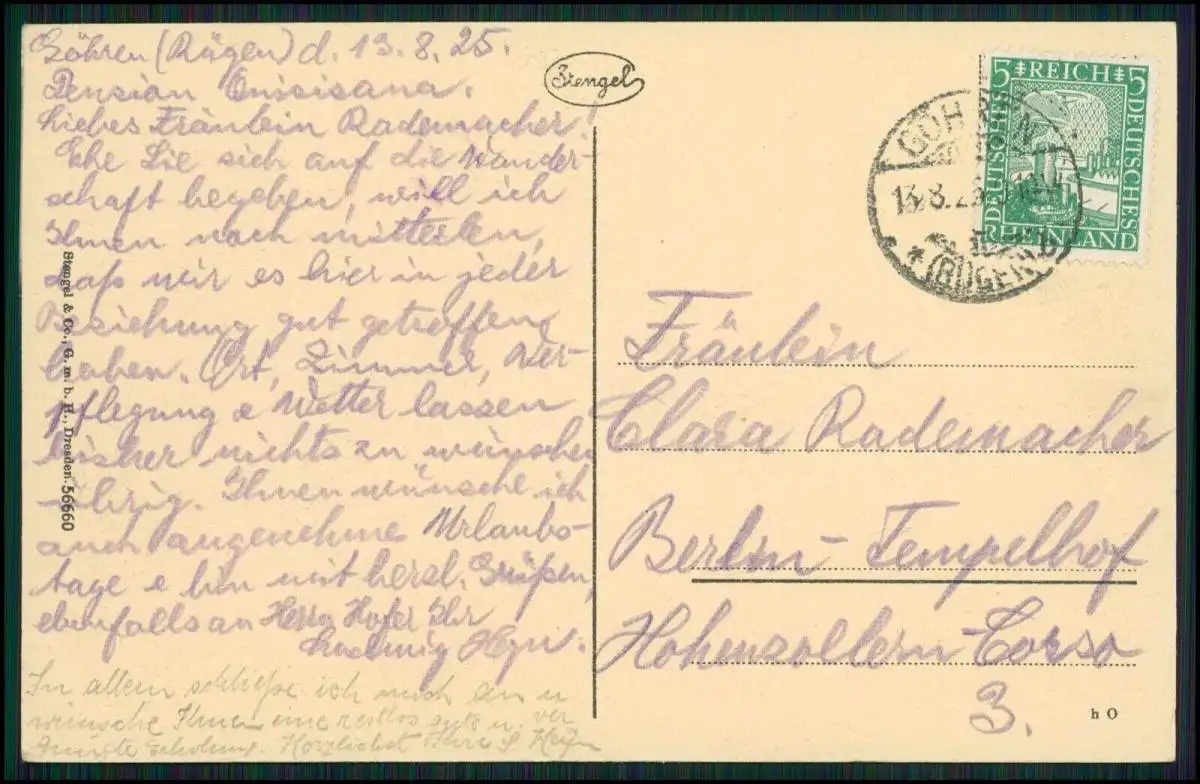 Göhren (Rügen) d. 13.8.25.
Pension
Liebes Fräulein Rademacher!
Ehe Sie sich auf die Wander-
schaft begeben, will ich
Ihnen noch mitteilen,
daß wir es hier in jeder
Beziehung gut getroffen
haben. Ort, Zimmer, Ver-
pflegung & Wetter lassen
bisher nichts zu wünschen
übrig. Ihnen wünsche ich
auch angenehme Urlaubs-
tage & bin mit herzl. Grüßen,
ebenfalls an Herrn Hofer Ihr
Ludwig
In allem schließe ich mich an u
wünsche Ihnen eine restlos gute u. ver
diente Erholung. Herzlichst Ihre
Stengel & Co., G. m. b. H., Dresden. 56660
Stengel
5 REICH 5
DEUTSCHES
DEUTSCHES
RHEINLAND
GÖHREN
13.8.25
(RÜGEN)
Fräulein
Clara Rademacher
Berlin-Tempelhof
Hohenzollern-Corso
3.
h O